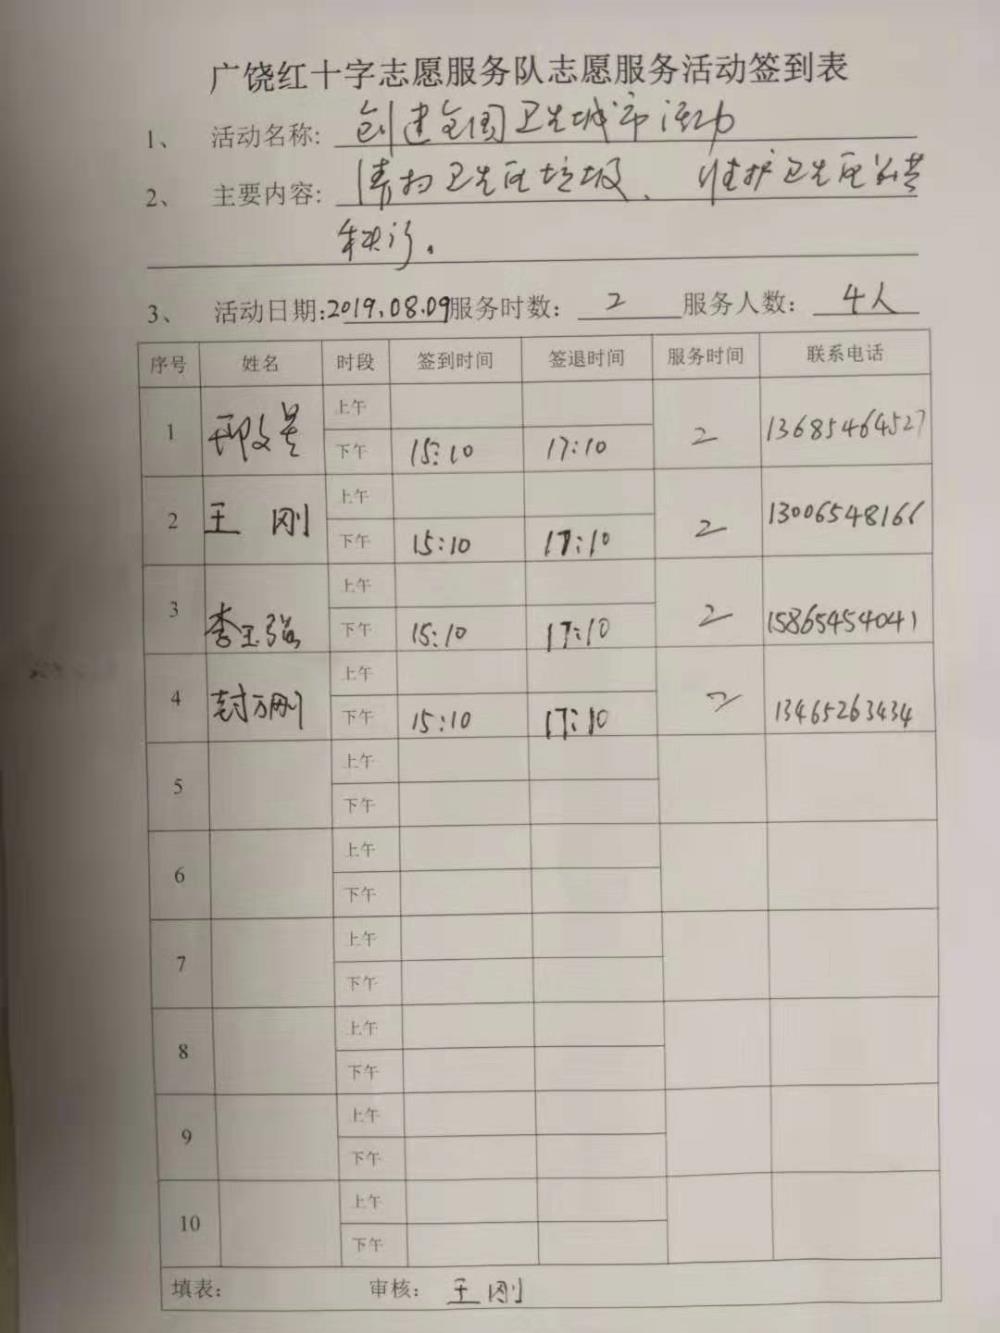 广饶红十字志愿服务队志愿服务活动签到表
1、 活动名称: 创建全国卫生城市活动
2、 主要内容: 清扫卫生区垃圾、维护卫生区公共
秩序。
3、 活动日期:2019.08.09服务时数: 2 服务人数: 4人
序号 姓名 时段 签到时间 签退时间 服务时间 联系电话
1 邢文 上午
下午 15:10 17:10 2 13685464527
2 王刚 上午
下午 15:10 17:10 2 13006548166
3 李玉强 上午
下午 15:10 17:10 2 15865454041
4 封万刚 上午
下午 15:10 17:10 2 13465263434
5 上午
下午
6 上午
下午
7 上午
下午
8 上午
下午
9 上午
下午
10 上午
下午
填表: 审核: 王刚